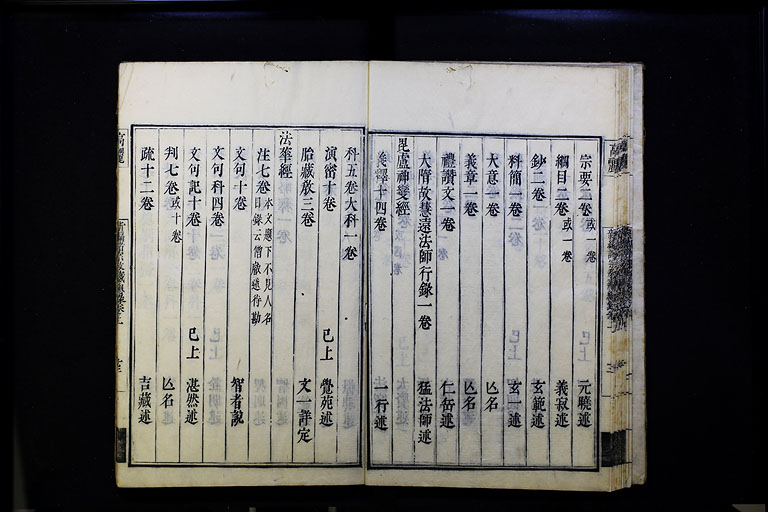 宗要二卷 或一卷 元曉述
綱目二卷 或一卷 義寂述
鈔二卷 玄範述
料簡一卷 玄一述
大意一卷 亾名
義章一卷 亾名
禮讃文一卷 仁岳述
大隋故慧遠法師行錄一卷 猛法師述
毘盧神變經
義釋十四卷 一行述
科五卷大科一卷
演密十卷 已上 覺苑述
胎藏敎三卷 文一詳定
法華經
注七卷 本文題下不見人名目錄云僧獻述待勘
文句十卷 智者說
文句科四卷
文句記十卷 已上 湛然述
判七卷 或十卷 亾名
疏十二卷 吉藏述
高麗